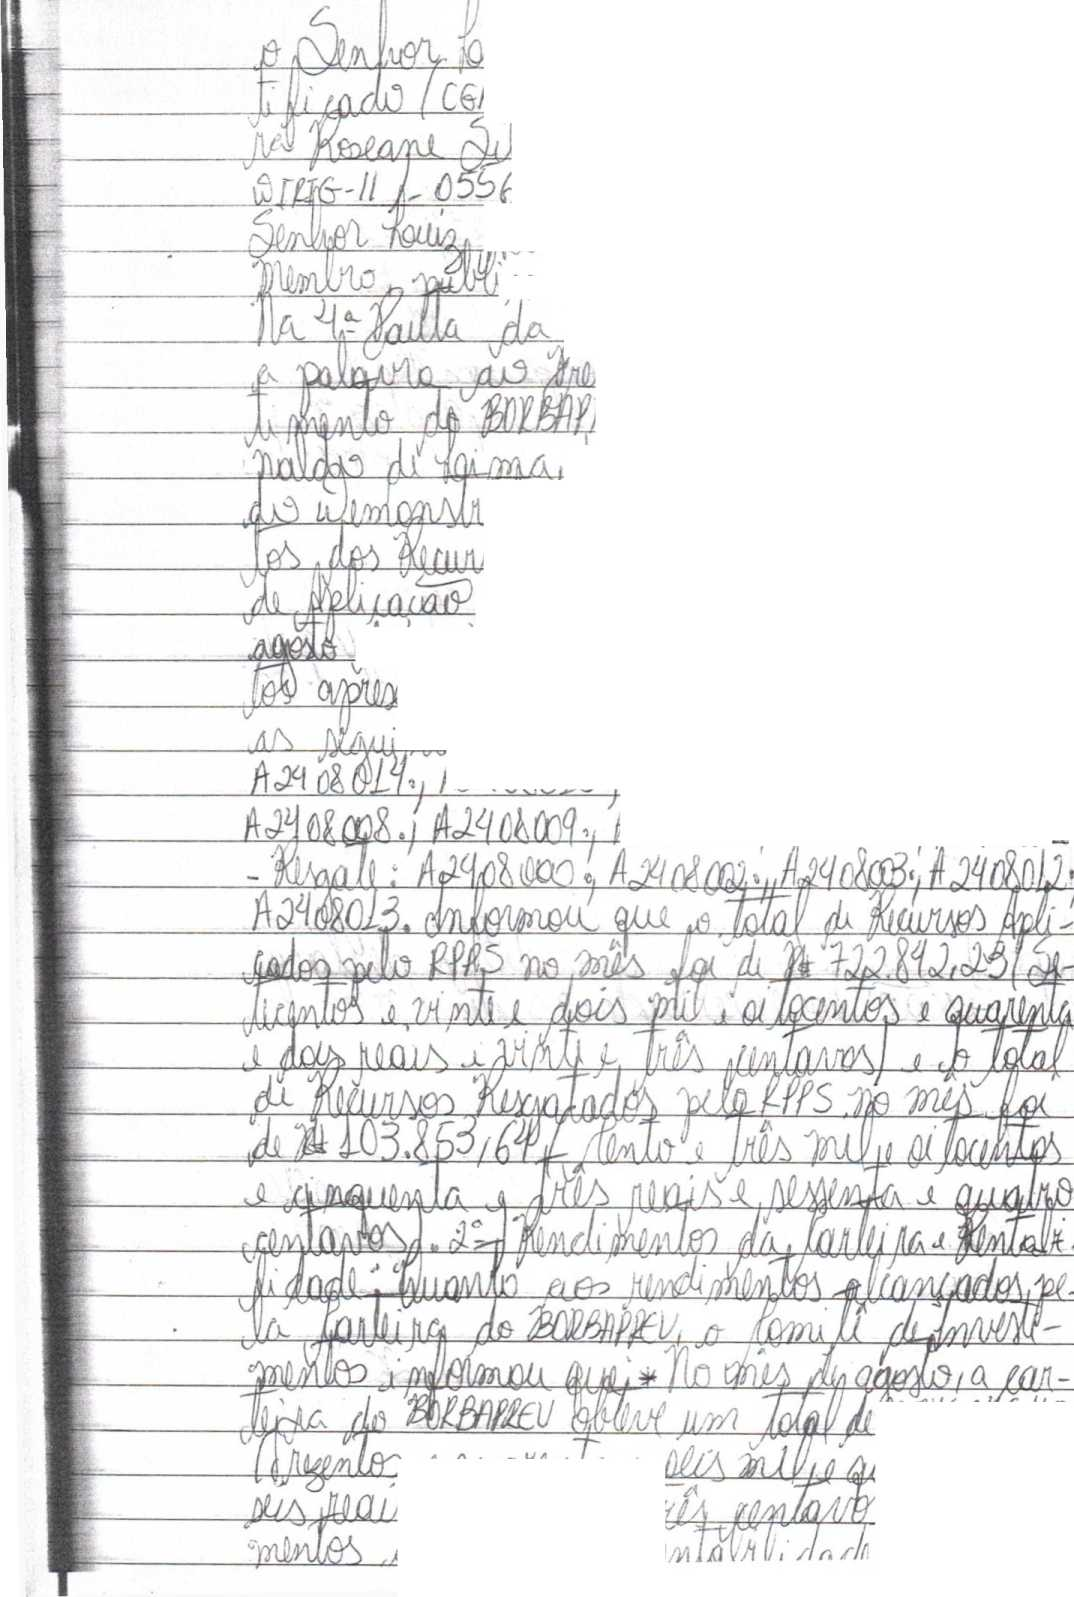 o Senhor Lo
tificado (CG
ra Roseane Si
DIRIG-II - 055
Senhor Luiz
membro, públi
Na 4ª Pauta da
a palavra ao Pre
timento do BORBAP
naldo de Lima
do Demonstr
tos dos Recur
de Aplicação
agosto
tos apres
as segui
A2408014.;
A2408008.; A2408009.;
- Resgate: A2408000.; A2408002.; A2408003.; A2408012.;
A2408013. Informou que o total de Recursos Apli-
cados pelo RPPS no mês foi de R$ 722.842,23 (Se-
tecentos e vinte e dois mil e oitocentos e quarenta
e dois reais e vinte e três centavos) e o total
de Recursos Resgatados pelo RPPS no mês foi
de R$ 103.853,64 (Cento e três mil, e oitocentos
e cinquenta e três reais e sessenta e quatro
centavos). 2º-) Rendimentos da Carteira e Rentabi-
lidade: Quanto aos rendimentos alcançados pe-
la Carteira do BORBAPREV, o Comitê de Investi-
mentos informou que: * No mês de agosto, a car-
teira do BORBAPREV obteve um total de
(Trezentos seis mil, e qu
seis reai rês centavo
mentos ntabilidade